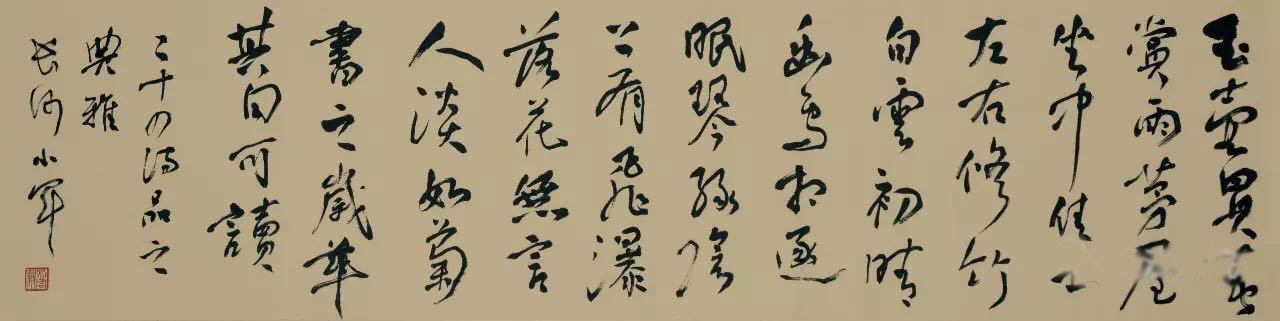 玉壺買春
賞雨茅屋
坐中佳士
左右修竹
白雲初晴
幽鳥相逐
眠琴綠陰
上有飛瀑
落花無言
人淡如菊
書之歲華
其曰可讀
二十四詩品之
典雅
長沙小軍